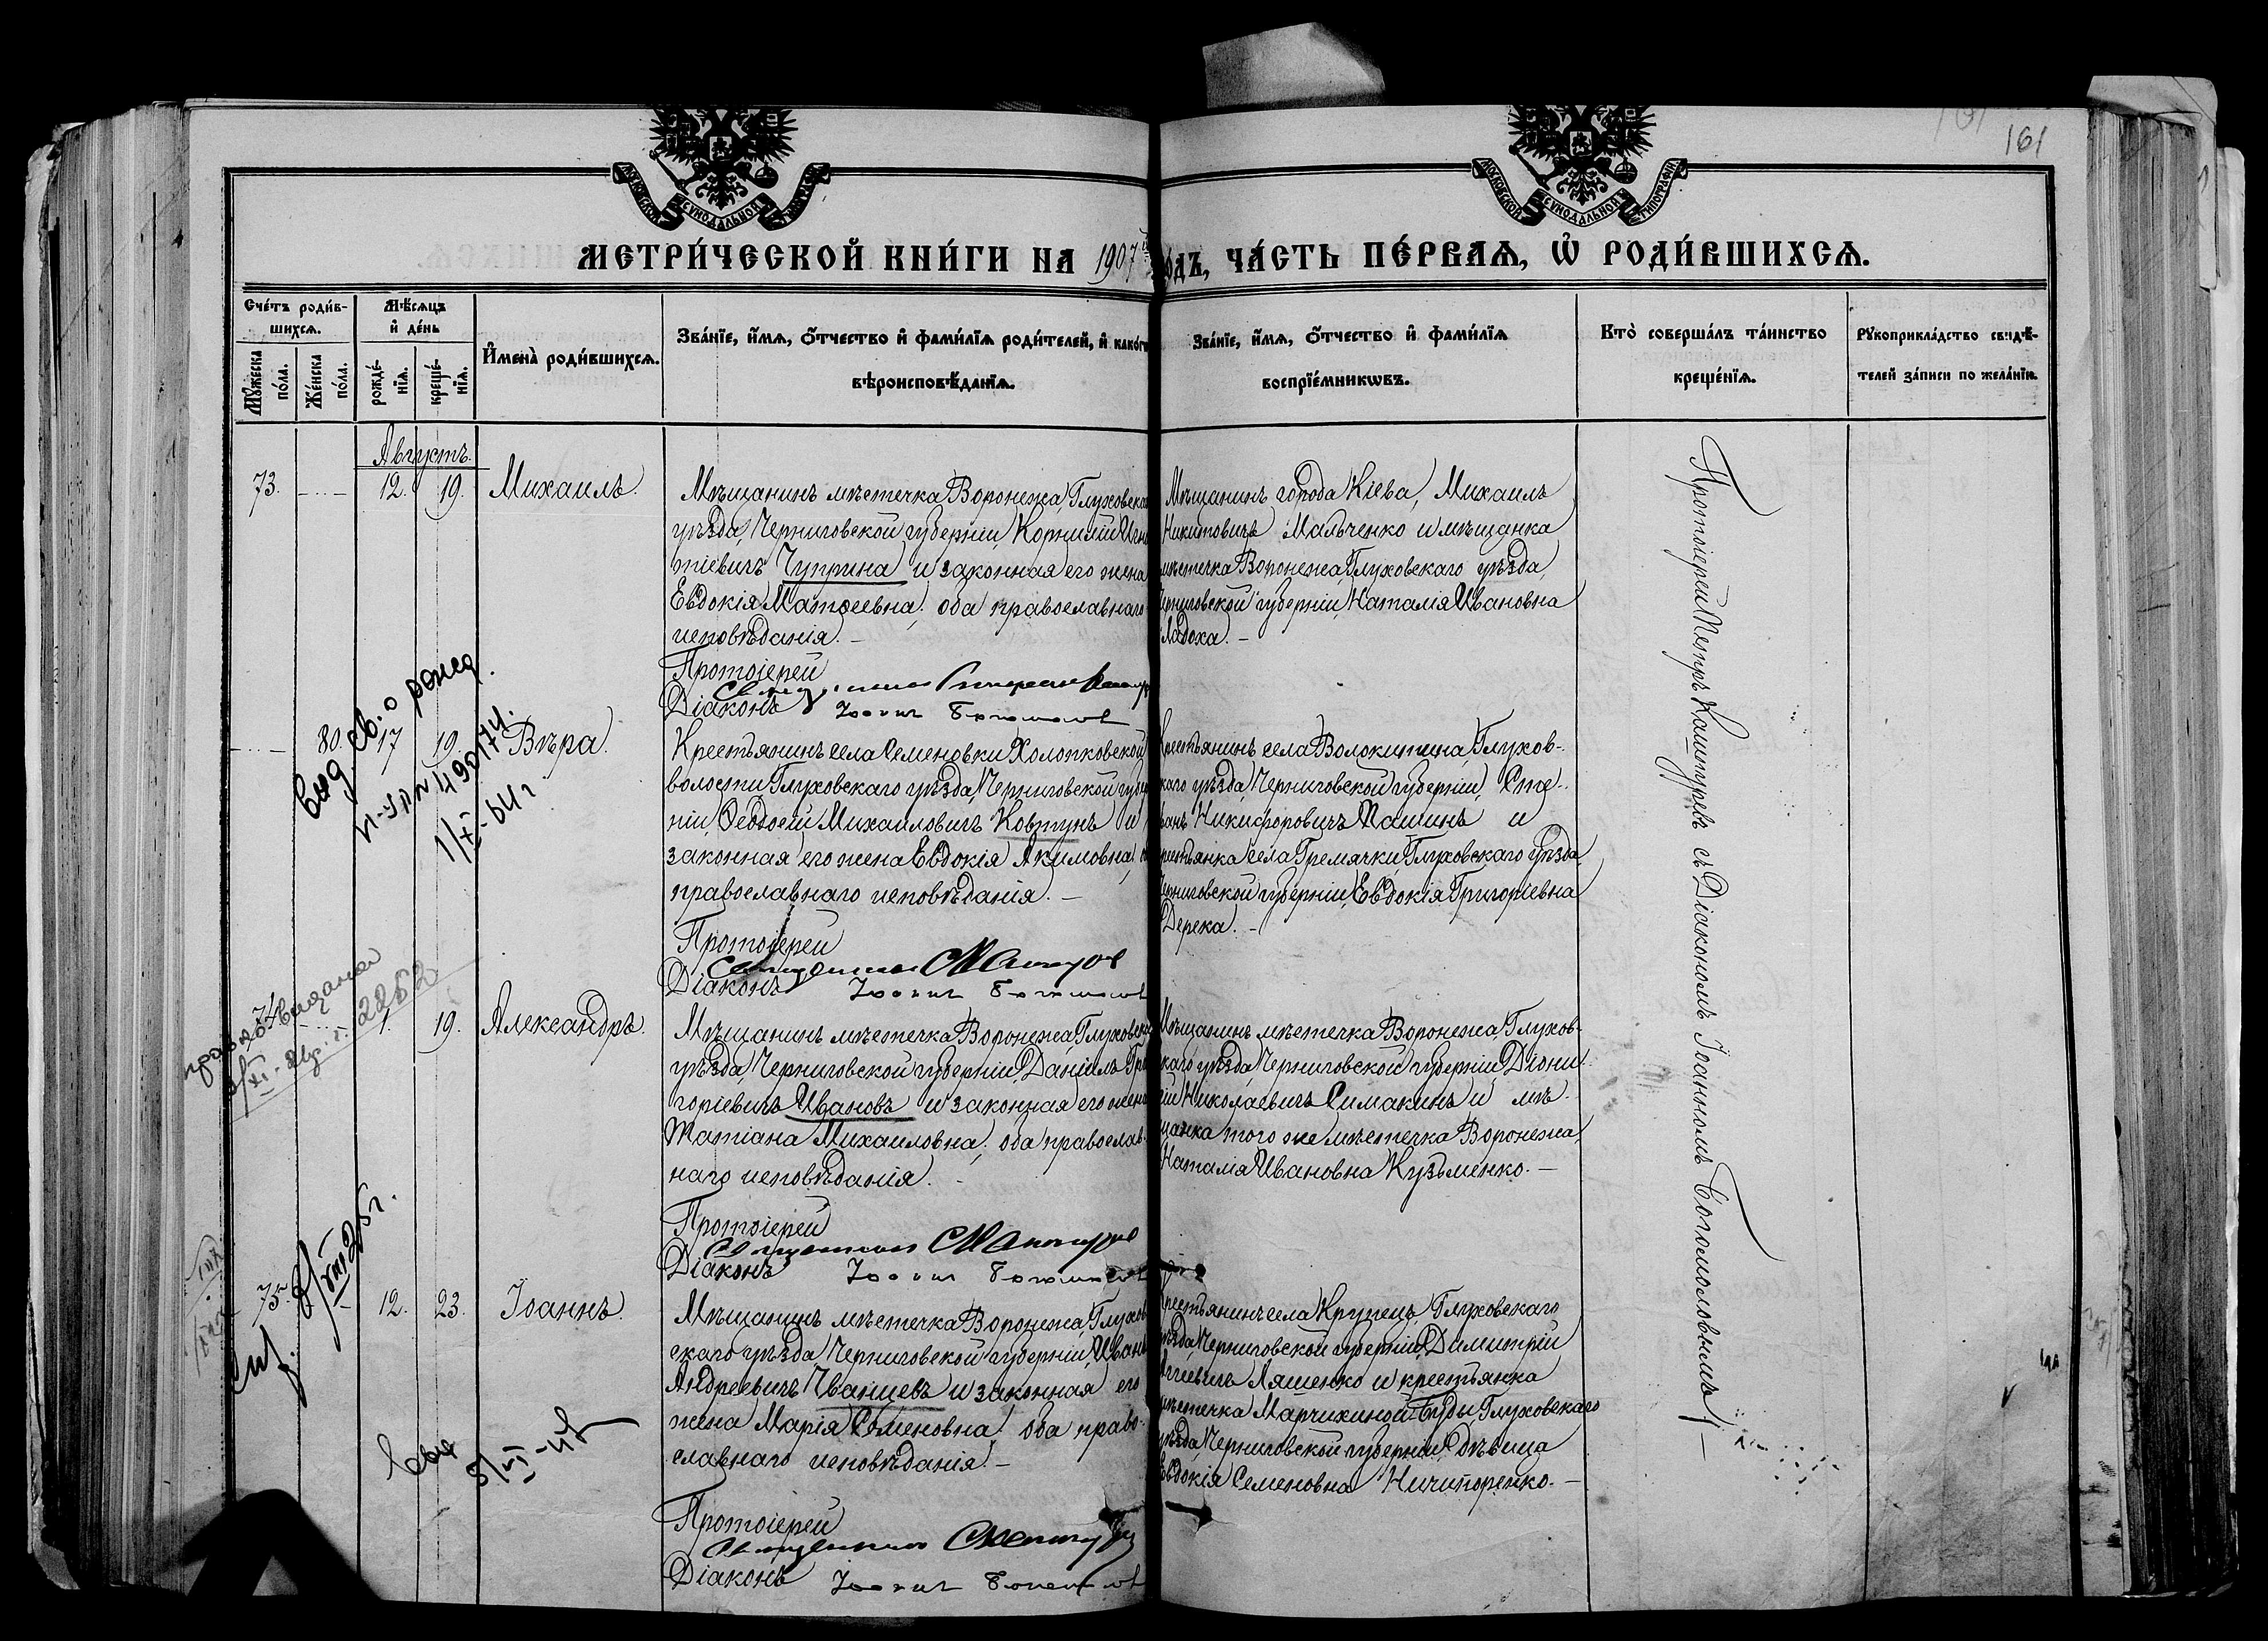 161
МОСКОВСКОЙ СУНОДАЛЬНОЙ ТИПОГРАФІИ
МОСКОВСКОЙ СУНОДАЛЬНОЙ ТИПОГРАФІИ
МЕТРИ́ЧЕСКОЙ КНИ́ГИ НА 1907 го́дъ, ЧА́СТЬ ПЕ́РВАѦ, Ѡ҆ РОДИ́ВШИХСѦ.
Сче́тъ роди́в-
шихсѧ.
Мꙋ́жеска по́ла.
Же́нска по́ла.
Мѣ́сѧцъ
и҆ де́нь
рожде́-нїѧ.
креще́-нїѧ.
И҆мена̀ роди́вшихсѧ.
Зва́нїе, и҆́мѧ, ѻ҆́тчество и҆ фами́лїѧ роди́телей, и҆ како́гѡ
вѣроисповѣ́данїѧ.
Зва́нїе, и҆́мѧ, ѻ҆́тчество и҆ фами́лїѧ
воспрїе́мникѡвъ.
Кто̀ соверша́лъ та́инство
креще́нїѧ.
Рꙋкоприкла́дство свидѣ́-
телей за́писи по жела́нїю.
Августъ.
73. 12. 19. Михаилъ.
Мѣщанинъ мѣстечка Воронежа, Глуховскаго
уѣзда, Черниговской губерніи, Корнилій Игна
тіевичъ Чуприна и законная его жена
Евдокія Матѳеевна; оба православнаго
исповѣданія. –
Протоіерей
Діаконъ
Мѣщанинъ города Кіева, Михаилъ
Никитовичъ Мальченко и мѣщанка
мѣстечка Воронежа, Глуховскаго уѣзда,
Черниговской губерніи, Наталія Ивановна
Ладоха. –
80. 17 19. Вѣра.
Крестьянинъ села Семеновки Холопковской
волости, Глуховскаго уѣзда, Черниговской губер
ніи, Ѳеодосій Михаиловичъ Ковтунъ и
законная его жена Евдокія Акимовна,
православнаго исповѣданія. –
Протоіерей
Діаконъ
Крестьянинъ села Волокитина, Глухов-
скаго уѣзда, Черниговской губерніи, Сте-
фанъ Никифоровичъ Пашинъ и
крестьянка села Гремячки, Глуховскаго уѣзда,
Черниговской губерніи, Евдокія Григоріевна
Дерека. –
Выд. св. о рожд.
74 1. 19. Александръ.
Мѣщанинъ мѣстечка Воронежа, Глуховскаго
уѣзда, Черниговской губерніи, Даніилъ Гри
горіевичъ Ивановъ и законная его жена
Татіана Михаиловна; оба православ-
наго исповѣданія. –
Протоіерей
Діаконъ
Мѣщанинъ мѣстечка Воронежа, Глухов-
скаго уѣзда, Черниговской губерніи Діони-
сій Николаевичъ Симакинъ и мѣ-
щанка того же мѣстечка Воронежа,
Наталія Ивановна Кузьменко. –
75. 12. 23. Іоаннъ.
Мѣщанинъ мѣстечка Воронежа, Глухов
скаго уѣзда, Черниговской губерніи, Иванъ
Андреевичъ Иванцевъ и законная его
жена Марія Семеновна; оба право-
славнаго исповѣданія. –
Протоіерей
Діаконъ
Крестьянинъ села Крупецъ, Глуховскаго
уѣзда, Черниговской губерніи, Димитрій
Ляшенко и крестьянка
мѣстечка Марчихиной-Буды, Глуховскаго
уѣзда, Черниговской губерніи, дѣвица
Евдокія Семеновна Ничипоренко. –
Протоіерей Петръ Каштуревъ съ Діакономъ Іоанномъ Богомоловымъ. –